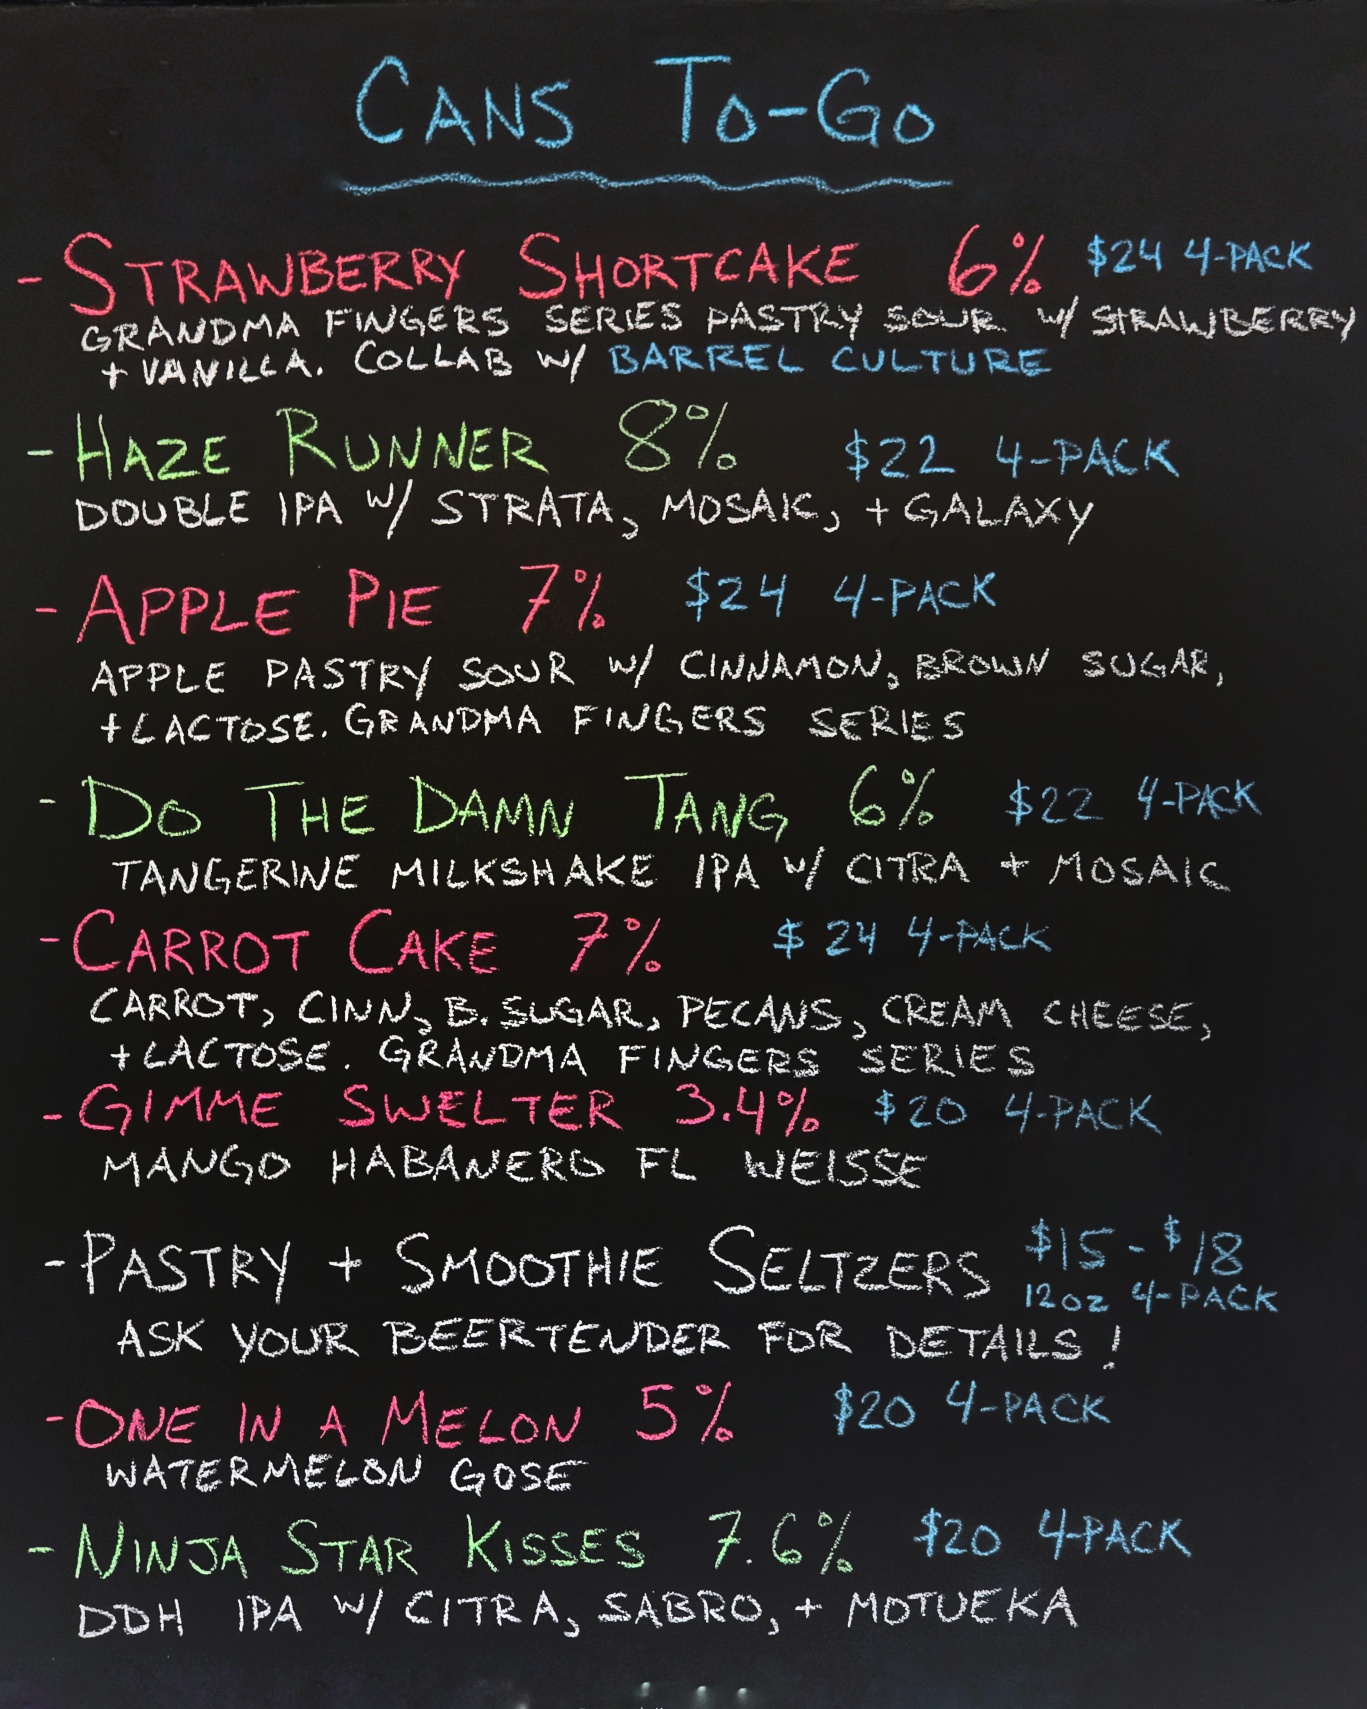 CANS TO-GO
- STRAWBERRY SHORTCAKE 6% $24 4-PACK
GRANDMA FINGERS SERIES PASTRY SOUR W/ STRAWBERRY
+ VANILLA. COLLAB W/ BARREL CULTURE
- HAZE RUNNER 8% $22 4-PACK
DOUBLE IPA W/ STRATA, MOSAIC, + GALAXY
- APPLE PIE 7% $24 4-PACK
APPLE PASTRY SOUR W/ CINNAMON, BROWN SUGAR,
+ LACTOSE. GRANDMA FINGERS SERIES
- DO THE DAMN TANG 6% $22 4-PACK
TANGERINE MILKSHAKE IPA W/ CITRA + MOSAIC
- CARROT CAKE 7% $24 4-PACK
CARROT, CINN, B. SUGAR, PECANS, CREAM CHEESE,
+ LACTOSE. GRANDMA FINGERS SERIES
- GIMME SWELTER 3.4% $20 4-PACK
MANGO HABANERO FL WEISSE
- PASTRY + SMOOTHIE SELTZERS $15 - $18
12OZ 4-PACK
ASK YOUR BEERTENDER FOR DETAILS!
- ONE IN A MELON 5% $20 4-PACK
WATERMELON GOSE
- NINJA STAR KISSES 7.6% $20 4-PACK
DDH IPA W/ CITRA, SABRO, + MOTUEKA